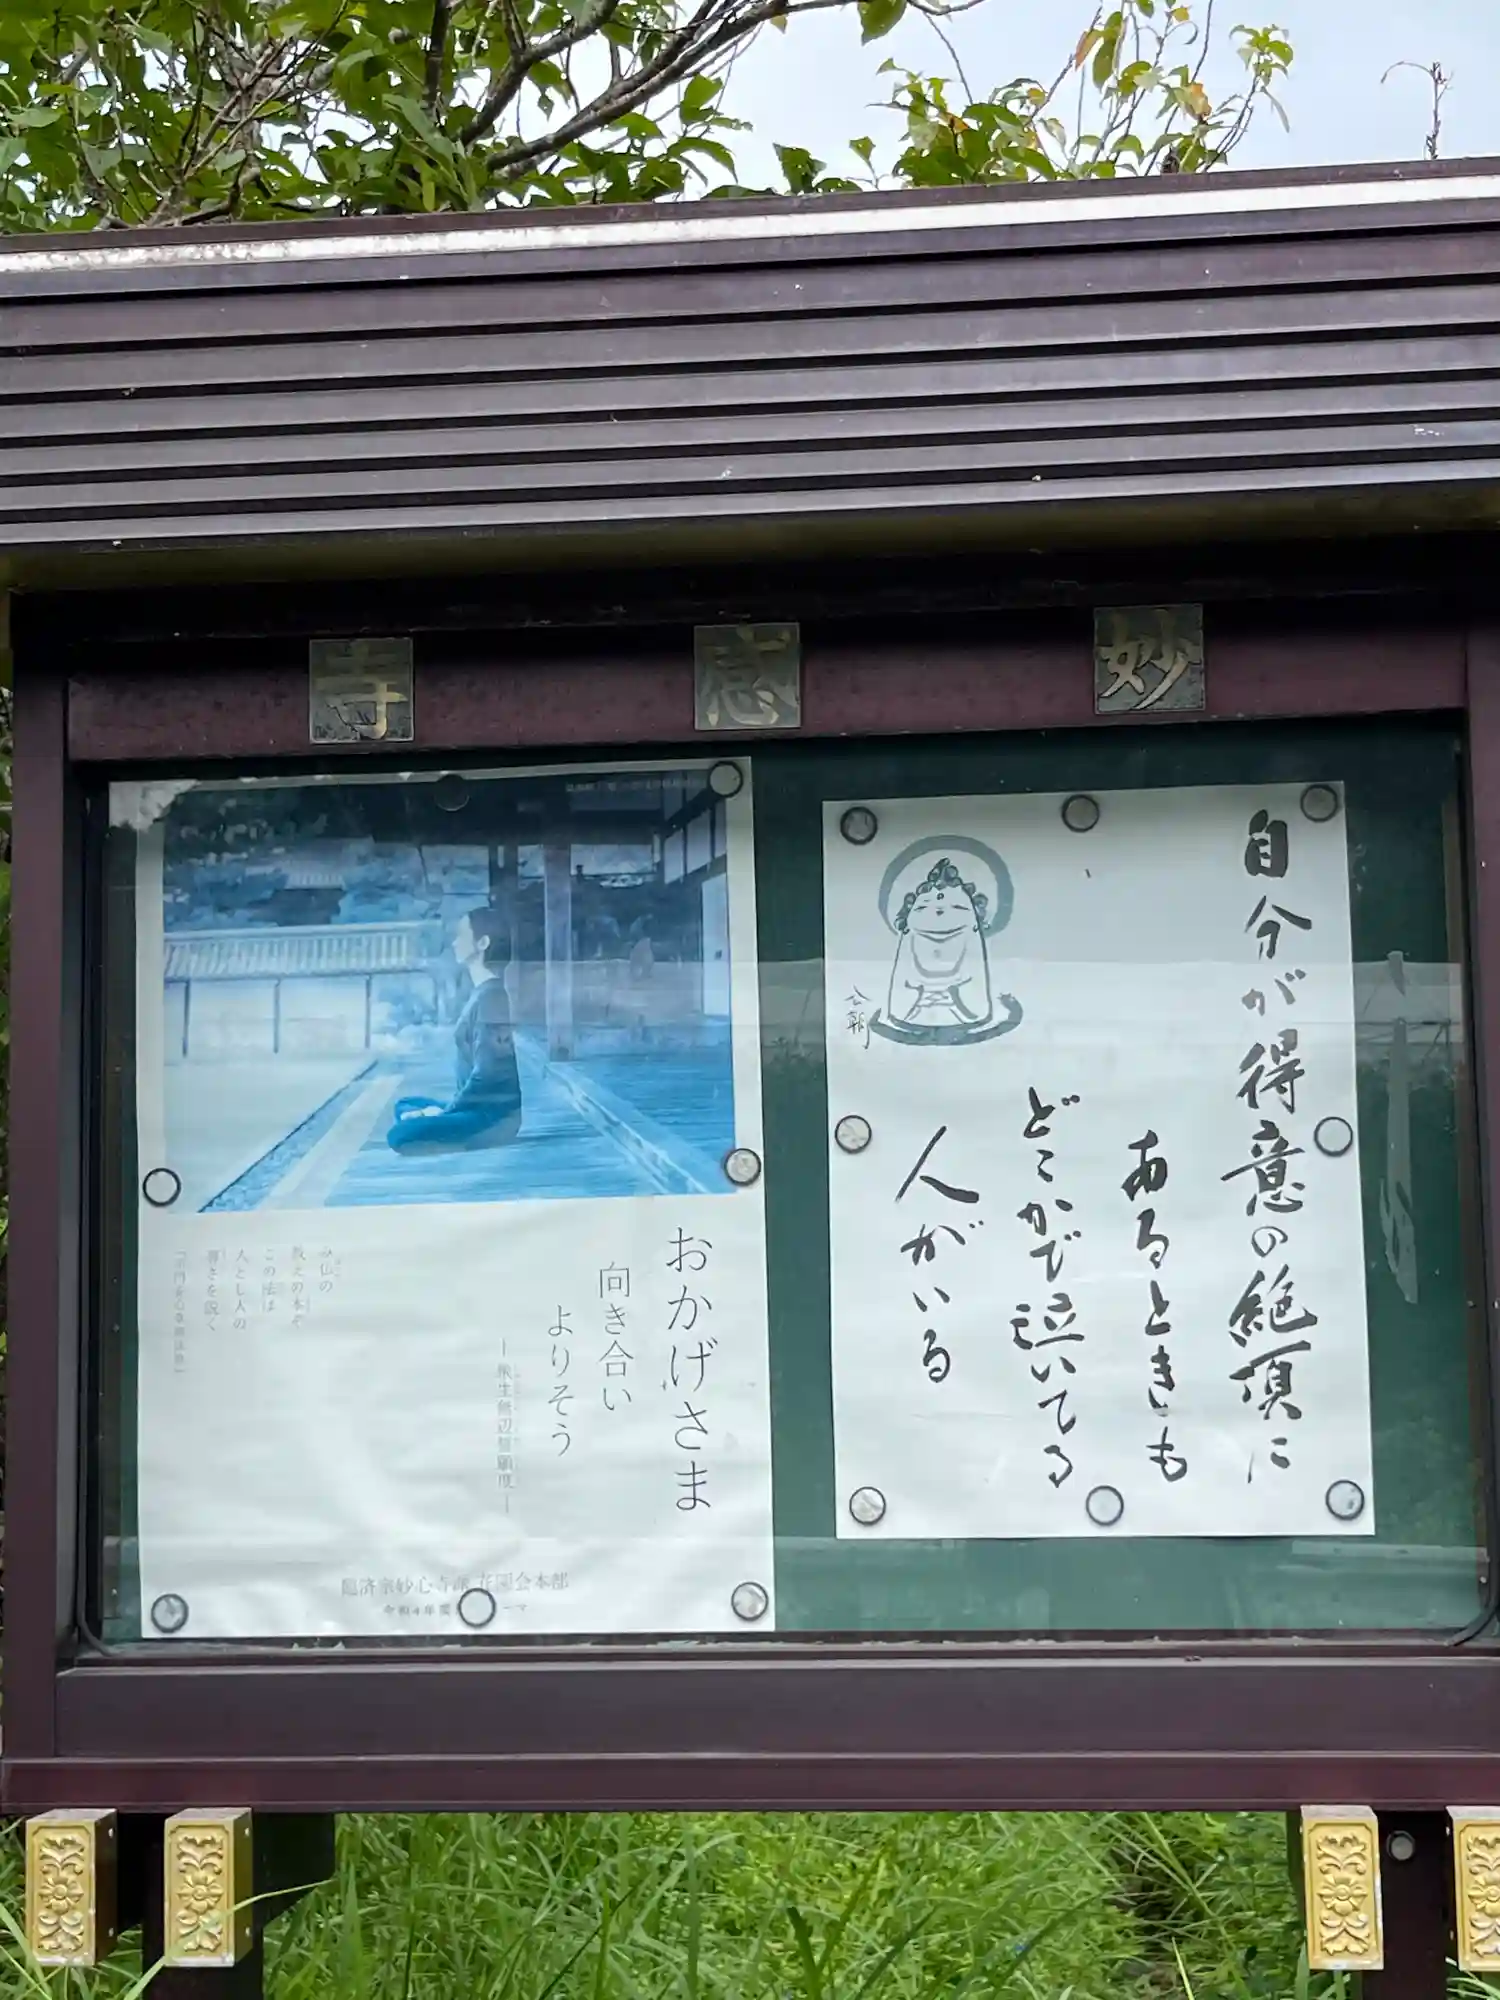 妙感寺
自分が得意の絶頂に
あるときも
どこかで泣いてる
人がいる
おかげさま
向き合い
よりそう
―衆生無辺誓願度―
み仏の
教えの本ぞ
この法は
人とし人の
尊さを説く
臨済宗妙心寺派 花園会本部